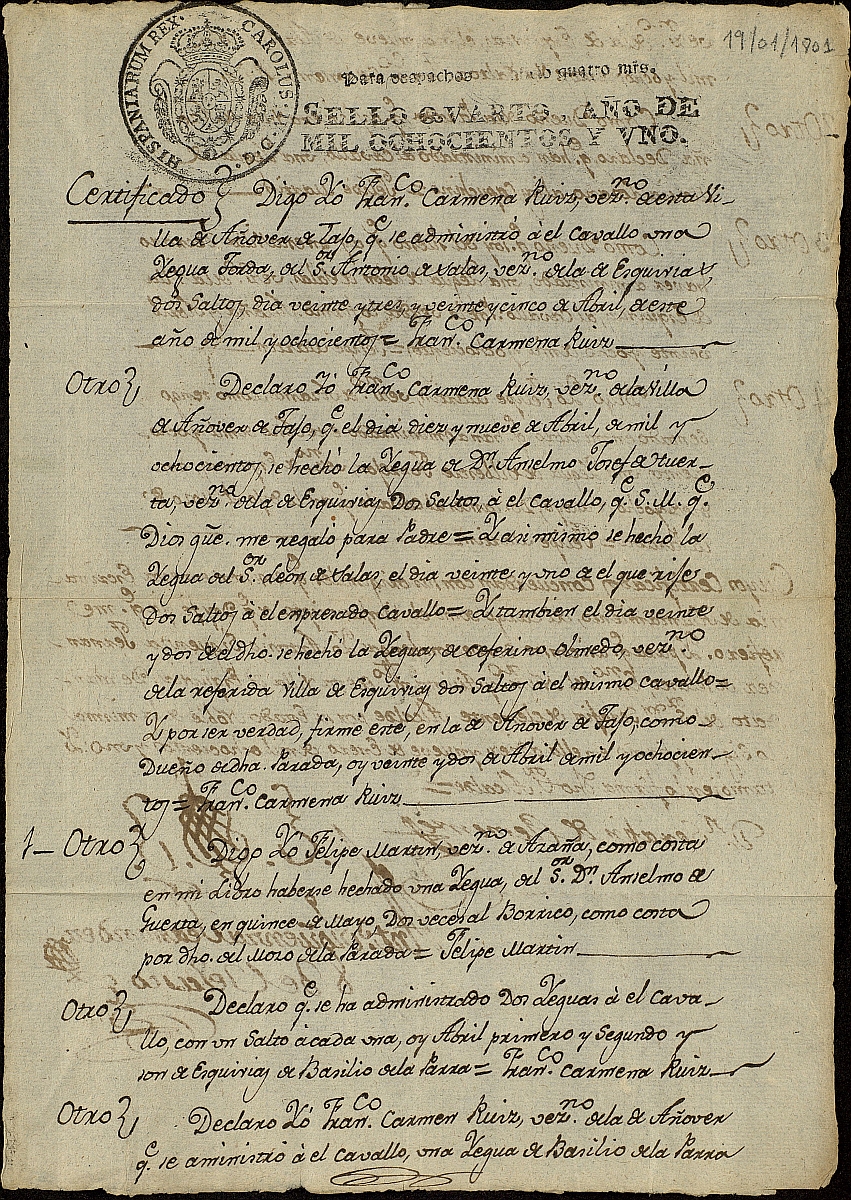 19/01/1801
HISPANIARUM REX. CAROLUS. IV. D. G.
Para despachos quatro mrs.
SELLO QVARTO, AÑO DE
MIL OCHOCIENTOS Y VNO.
Certificado Digo Yo Fran.co Carmena Ruiz, vez.no de esta Vi-
lla de Añover de Tajo, q.e se administró á el Cavallo una
Yegua Torda, del S.or Antonio de Salas, vez.no de la de Esquivias
dos Saltos, dia veinte y tres, y veinte y cinco de Abril, de este
año de mil y ochocientos = Fran.co Carmena Ruiz
Otro Declaro Yó Fran.co Carmena Ruiz, vez.no de la Villa
de Añover de Tajo, q.e el dia diez y nueve de Abril, de mil y
ochocientos, se hechó la Yegua de D.n Anselmo Josef de Huer-
ta, vez.no de la de Esquivias Dos Saltos, á el Cavallo, q.e S. M. q.e
Dios gue. me regaló para Padre = Y asi mismo se hechó la
Yegua del S.or Leon de Salas, el dia veinte y uno de el que rije
Dos Saltos á el expresado Cavallo = Y tambien el dia veinte
y dos de el dho. se hechó la Yegua, de Ceferino Olmedo, vez.no
de la referida Villa de Esquivias dos Saltos á el mismo Cavallo =
Y por ser verdad, firmé este, en la de Añover de Tajo, como
Dueño de dha. Parada, oy veinte y dos de Abril de mil y ochocien-
tos = Fran.co Carmena Ruiz
1- Otro Digo Yo Felipe Martin, vez.no de Azaña, como costa
en mi Libro haberse hechado una Yegua, del S.or D.n Anselmo de
Guerta, en quince de Mayo Dos veces al Borrico, como costa
por dho. del Mozo de la Parada = Felipe Martin
Otro Declaro q.e se ha administrado Dos Yeguas á el Cava-
llo, con un Salto á cada una, oy Abril primero y Segundo y
son de Esquivias de Basilio de la Parra = Fran.co Carmena Ruiz
Otro Declaro Yó Fran.co Carmen Ruiz, vez.no de la de Añover
q.e se aministró á el Cavallo, una Yegua de Basilio de la Parra